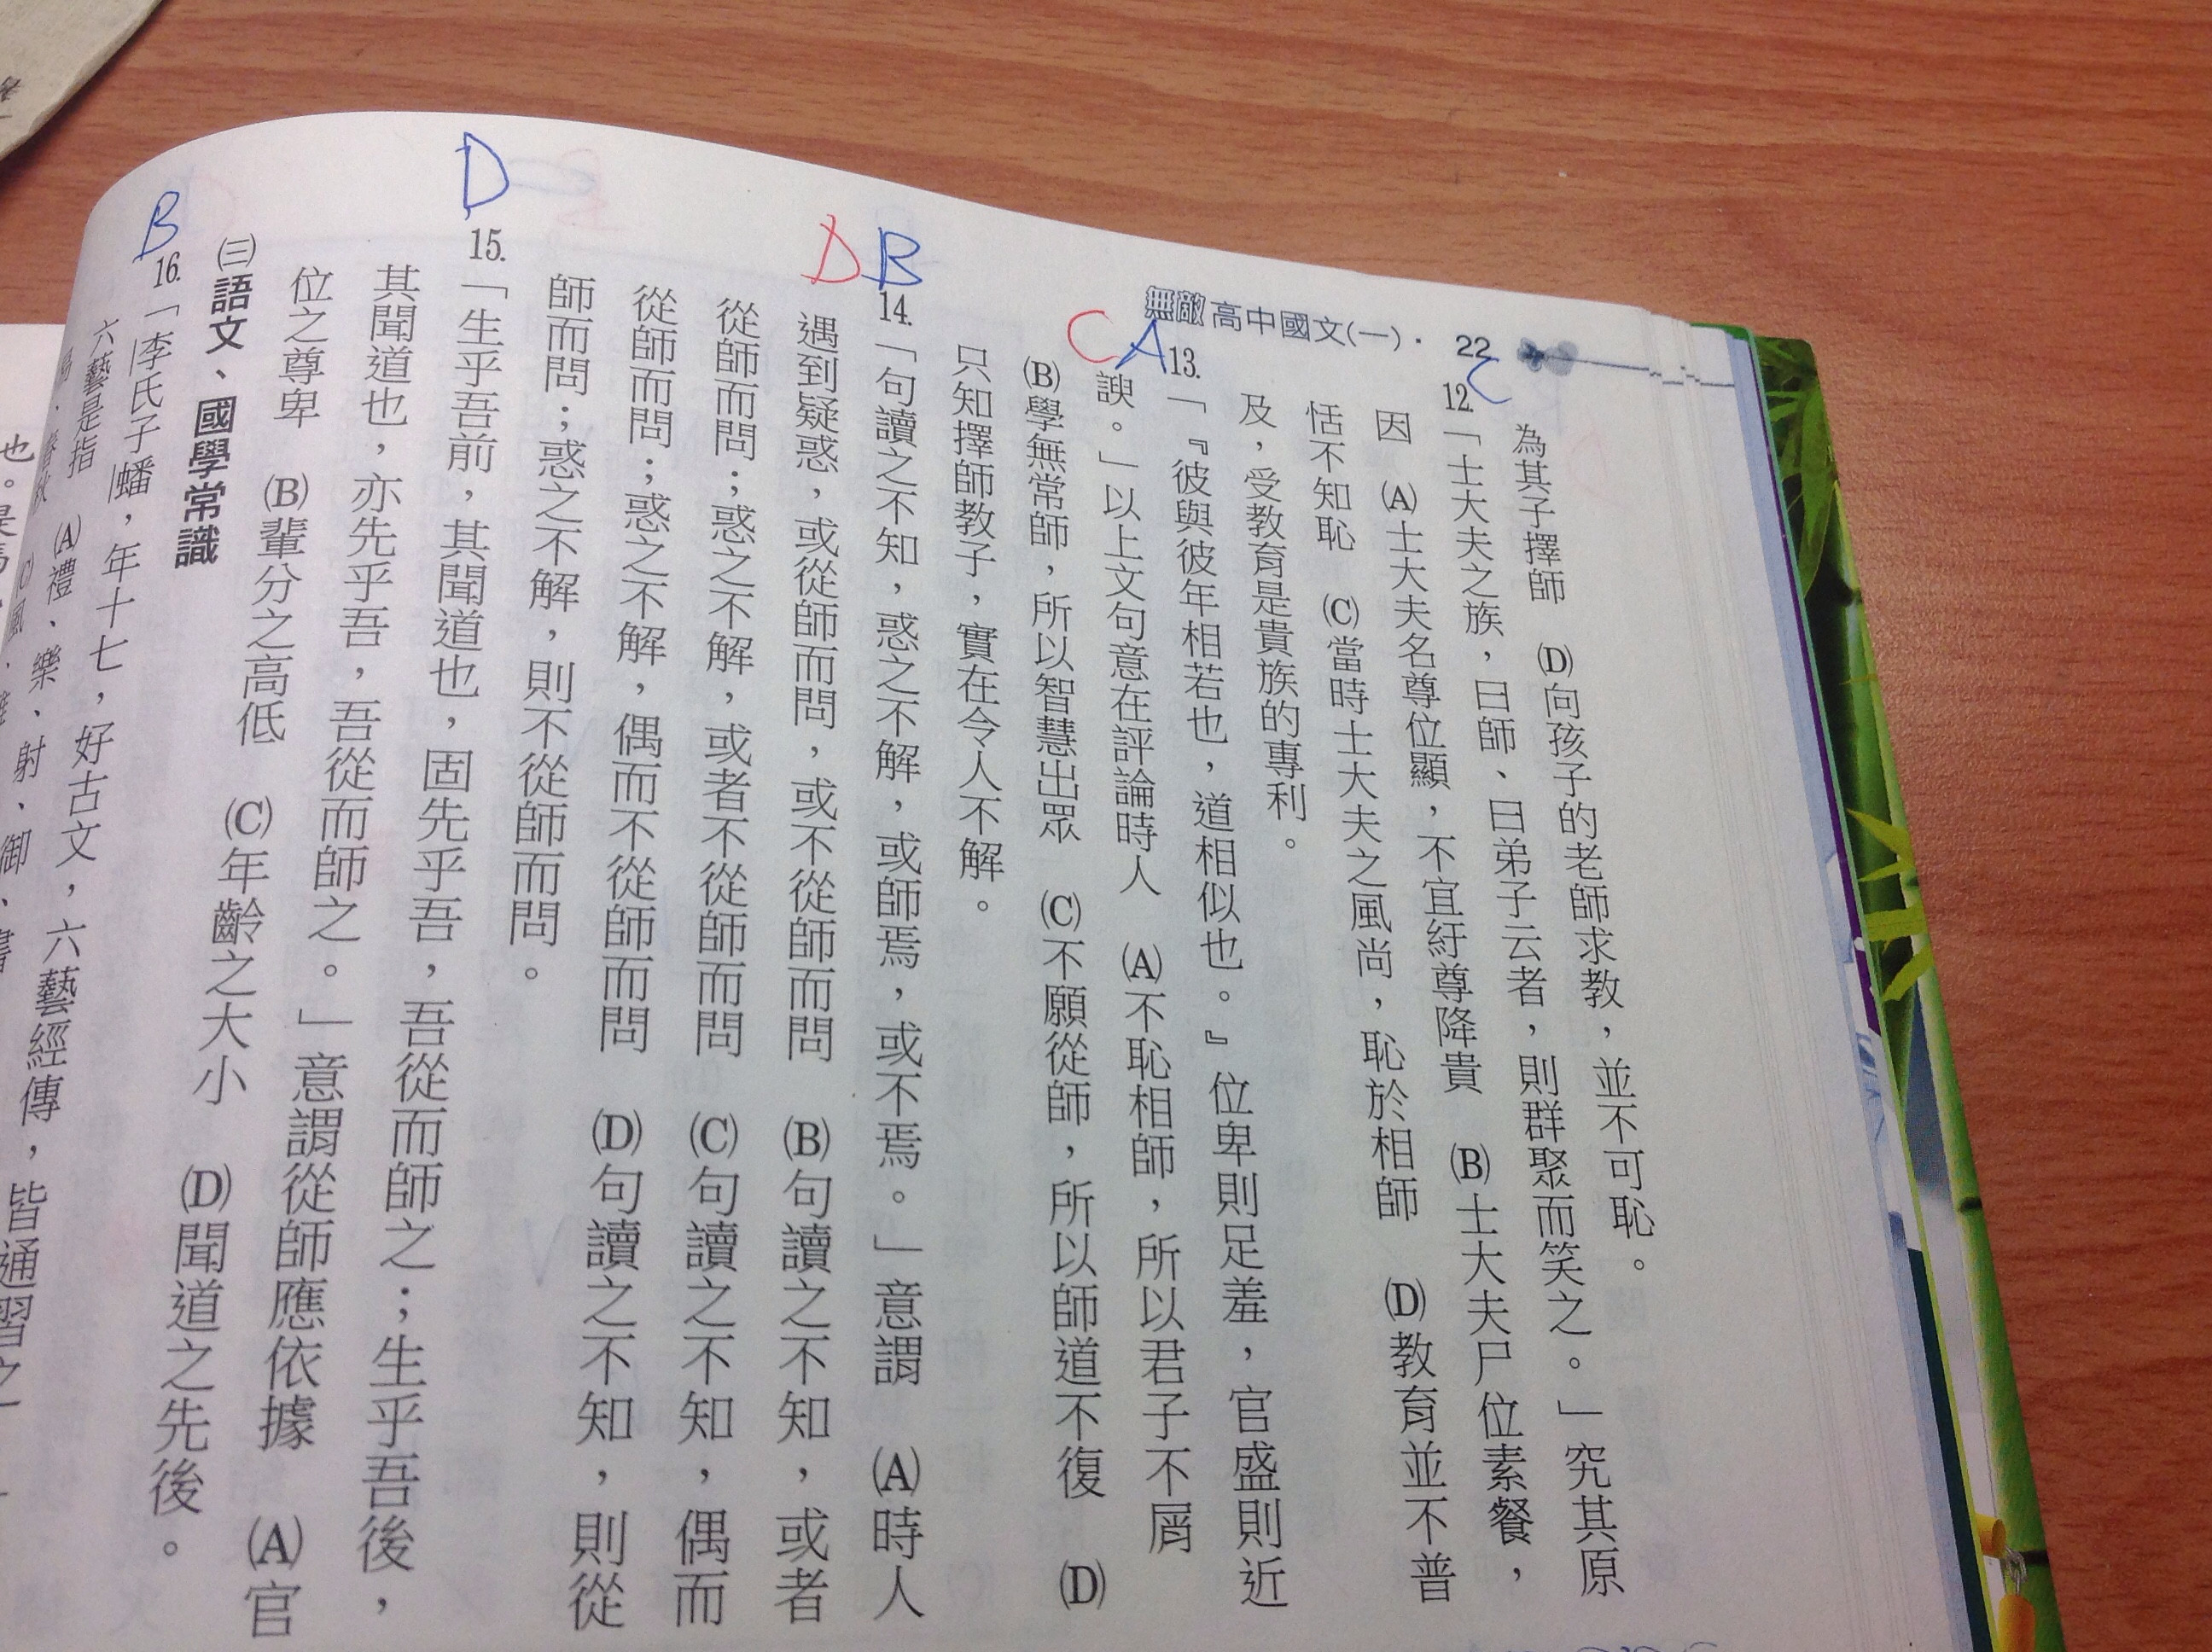 無敵高中國文(一)・22
為其子擇師 (D)向孩子的老師求教，並不可恥。
C
12.「士大夫之族，曰師、曰弟子云者，則群聚而笑之。」究其原
因 (A)士大夫名尊位顯，不宜紆尊降貴 (B)士大夫尸位素餐，
恬不知恥 (C)當時士大夫之風尚，恥於相師 (D)教育並不普
及，受教育是貴族的專利。
C A
13.「『彼與彼年相若也，道相似也。』位卑則足羞，官盛則近
諛。」以上文句意在評論時人 (A)不恥相師，所以君子不屑
(B)學無常師，所以智慧出眾 (C)不願從師，所以師道不復 (D)
只知擇師教子，實在令人不解。
D B
14.「句讀之不知，惑之不解，或師焉，或不焉。」意謂 (A)時人
遇到疑惑，或從師而問，或不從師而問 (B)句讀之不知，或者
從師而問；惑之不解，或者不從師而問 (C)句讀之不知，偶而
從師而問；惑之不解，偶而不從師而問 (D)句讀之不知，則從
師而問；惑之不解，則不從師而問。
D
15.「生乎吾前，其聞道也，固先乎吾，吾從而師之；生乎吾後，
其聞道也，亦先乎吾，吾從而師之。」意謂從師應依據 (A)官
位之尊卑 (B)輩分之高低 (C)年齡之大小 (D)聞道之先後。
㈢語文、國學常識
B
16.「李氏子蟠，年十七，好古文，六藝經傳，皆通習之
六藝是指 (A)禮、樂、射、御、書